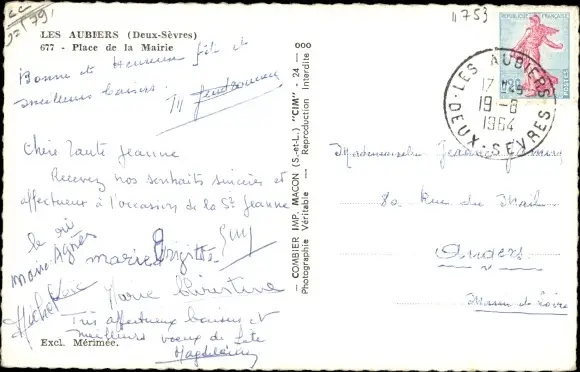 11753
LES AUBIERS (Deux-Sèvres)
677 - Place de la Mairie
Bonne et Heureuse fête et
meilleurs baisers.
Chère tante Jeanne
Recevez nos souhaits sincères et
affectueux à l'occasion de la St Jeanne
Guy
Marie Agnès
Marie Brigitte
Michel
Marie Christine
Très affectueux baisers et
meilleurs voeux de fête
Magdeleine
Excl. Mérimée.
COMBIER IMP. MACON (S.-et-L.) "CIM" - 24 - 000
Photographie Véritable — Reproduction Interdite
REPUBLIQUE FRANÇAISE
0,20
POSTES
LES AUBIERS
17 H
19-8
1964
DEUX-SEVRES
Mademoiselle Jeanne
80 Rue du Mail
Angers
Maine et Loire